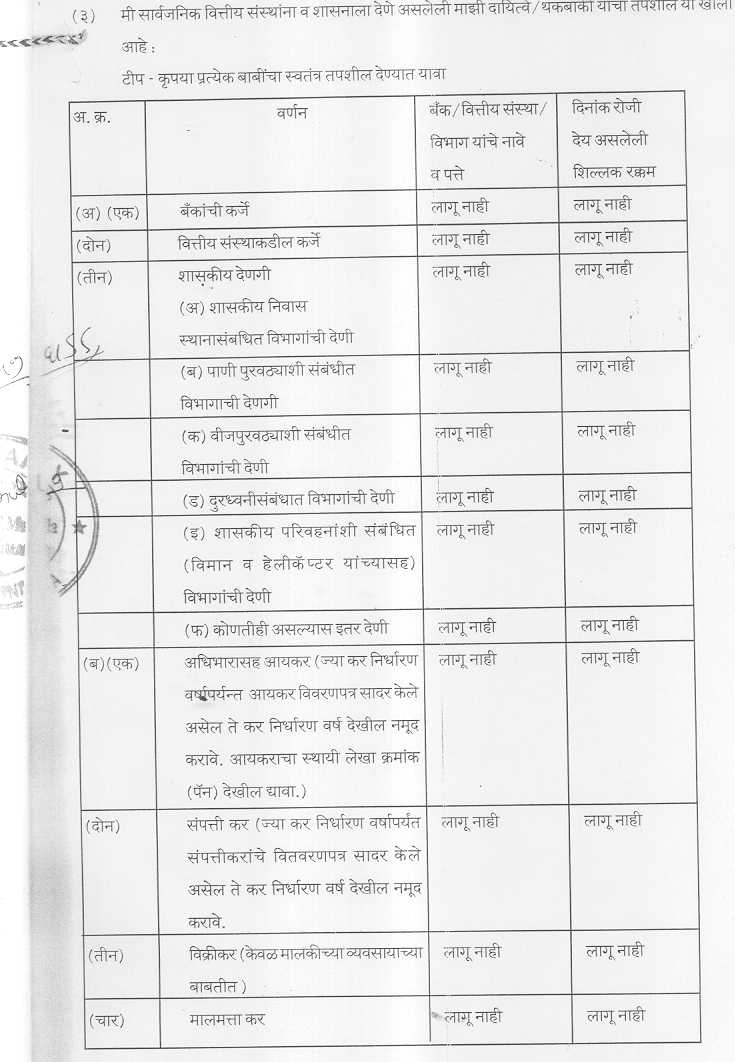 (३) मी सार्वजनिक वित्तीय संस्थांना व शासनाला देणे असलेली माझी दायित्वे/थकबाकी यांचा तपशील या खाली
आहे :
टीप - कृपया प्रत्येक बाबींचा स्वतंत्र तपशील देण्यात यावा
अ. क्र. वर्णन बँक/वित्तीय संस्था/ दिनांक रोजी
विभाग यांचे नावे देय असलेली
व पत्ते शिल्लक रक्कम
(अ) (एक) बँकांची कर्जे लागू नाही लागू नाही
(दोन) वित्तीय संस्थाकडील कर्जे लागू नाही लागू नाही
(तीन) शासकीय देणगी लागू नाही लागू नाही
(अ) शासकीय निवास
स्थानासंबधित विभागांची देणी
(ब) पाणी पुरवठ्याशी संबंधीत लागू नाही लागू नाही
विभागाची देणगी
(क) वीजपुरवठ्याशी संबंधीत लागू नाही लागू नाही
विभागांची देणी
(ड) दुरध्वनीसंबंधात विभागांची देणी लागू नाही लागू नाही
(इ) शासकीय परिवहनांशी संबंधित लागू नाही लागू नाही
(विमान व हेलीकॅप्टर यांच्यासह)
विभागांची देणी
(फ) कोणतीही असल्यास इतर देणी लागू नाही लागू नाही
(ब)(एक) अधिभारासह आयकर (ज्या कर निर्धारण लागू नाही लागू नाही
वर्षापर्यन्त आयकर विवरणपत्र सादर केले
असेल ते कर निर्धारण वर्ष देखील नमूद
करावे. आयकराचा स्थायी लेखा क्रमांक
(पॅन) देखील द्यावा.)
(दोन) संपत्ती कर (ज्या कर निर्धारण वर्षापर्यंत लागू नाही लागू नाही
संपत्तीकरांचे वितवरणपत्र सादर केले
असेल ते कर निर्धारण वर्ष देखील नमूद
करावे.
(तीन) विक्रीकर (केवळ मालकीच्या व्यवसायाच्या लागू नाही लागू नाही
बाबतीत )
(चार) मालमत्ता कर लागू नाही लागू नाही